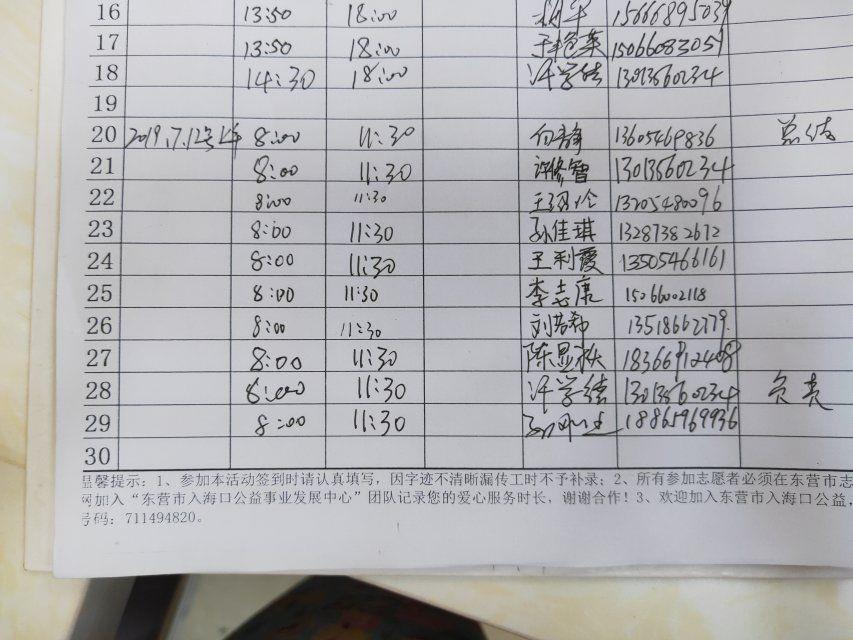 16 13:50 18:00 15666895039
17 13:50 18:00 于艳荣 15066083051
18 14:30 18:00 许学结 13013560234
19
20 2019.7.12号上午 8:00 11:30 向静 13605469836 总结
21 8:00 11:30 许修智 13013560234
22 8:00 11:30 13205480096
23 8:00 11:30 孙佳琪 13287382672
24 8:00 11:30 王利霞 13505466161
25 8:00 11:30 李志唐 15066002118
26 8:00 11:30 13518662779
27 8:00 11:30 陈显 18366912408
28 8:00 11:30 许学结 13013560234 负责
29 8:00 11:30 18865969936
30
温馨提示：1、参加本活动签到时请认真填写，因字迹不清晰漏传工时不予补录；2、所有参加志愿者必须在东营市志
网加入“东营市入海口公益事业发展中心”团队记录您的爱心服务时长，谢谢合作！3、欢迎加入东营市入海口公益，
号码：711494820。